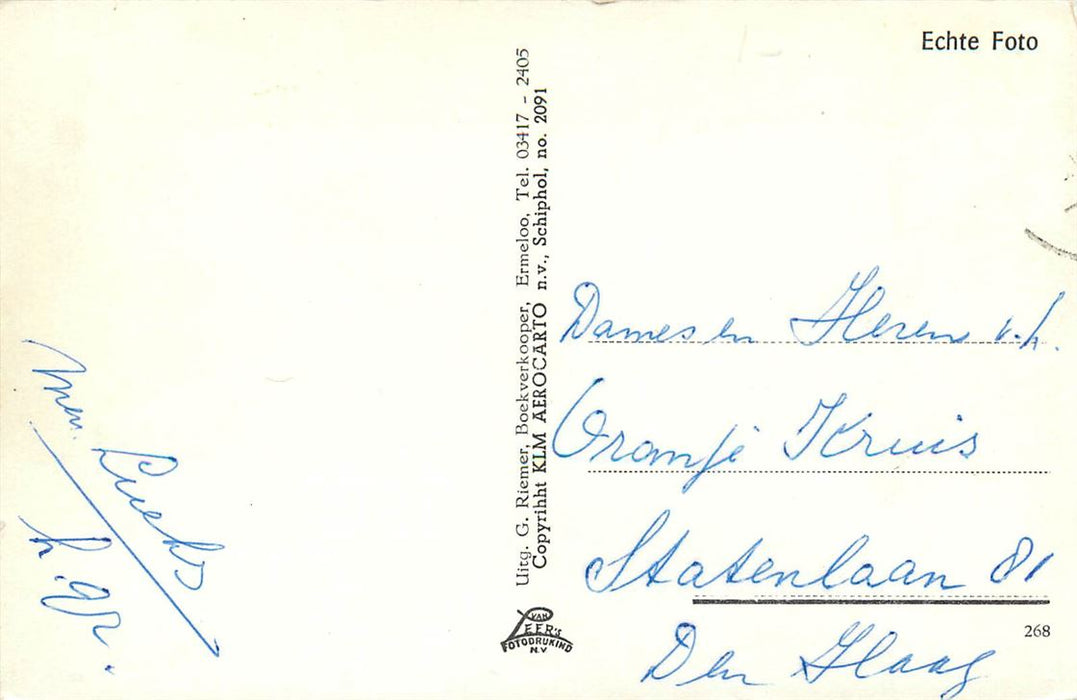 Echte Foto
Uitg. G. Riemer, Boekverkooper, Ermeloo, Tel. 03417 - 2405
Copyrihht KLM AEROCARTO n.v., Schiphol, no. 2091
Dames en Heren v.h.
Oranje Kruis
Statenlaan 81
Den Haag
268
VAN
LEER'S
FOTODRUKIND
N.V
h.gr.